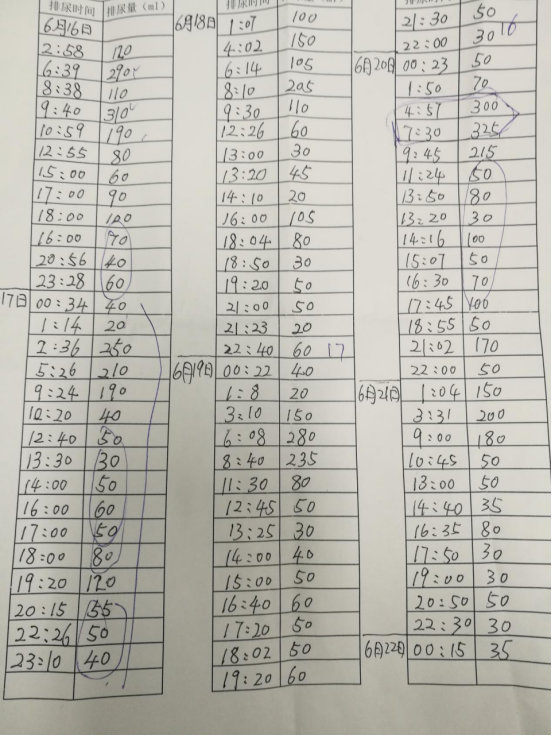 排尿时间 排尿量（ml）
6月16日
2:58 120
6:39 290
8:38 110
9:40 310
10:59 190
12:55 80
15:00 60
17:00 90
18:00 120
16:00 70
20:56 40
23:28 60
17日 00:34 40
1:14 20
2:36 250
5:26 210
9:24 190
10:20 40
12:40 50
13:30 30
14:00 50
16:00 60
17:00 50
18:00 80
19:20 120
20:15 55
22:26 50
23:10 40
排尿时间
6月18日 1:07 100
4:02 150
6:14 105
8:10 205
9:30 110
12:26 60
13:00 30
13:20 45
14:10 20
16:00 105
18:04 80
18:50 30
19:20 50
21:00 50
21:23 20
22:40 60 17
6月19日 00:22 40
1:8 20
3:10 150
6:08 280
8:40 235
11:30 80
12:45 50
13:25 30
14:00 40
15:00 50
16:40 60
17:20 50
18:02 50
19:20 60
排尿时间
21:30 50
22:00 30 16
6月20日 00:23 50
1:50 70
4:57 300
7:30 325
9:45 215
11:24 50
13:50 80
13:20 30
14:16 100
15:07 50
16:30 70
17:45 100
18:55 50
21:02 170
22:00 50
6月21日 1:04 150
3:31 200
9:00 180
10:45 50
13:00 50
14:40 35
16:35 80
17:50 30
19:00 30
20:50 50
22:30 30
6月22日 00:15 35